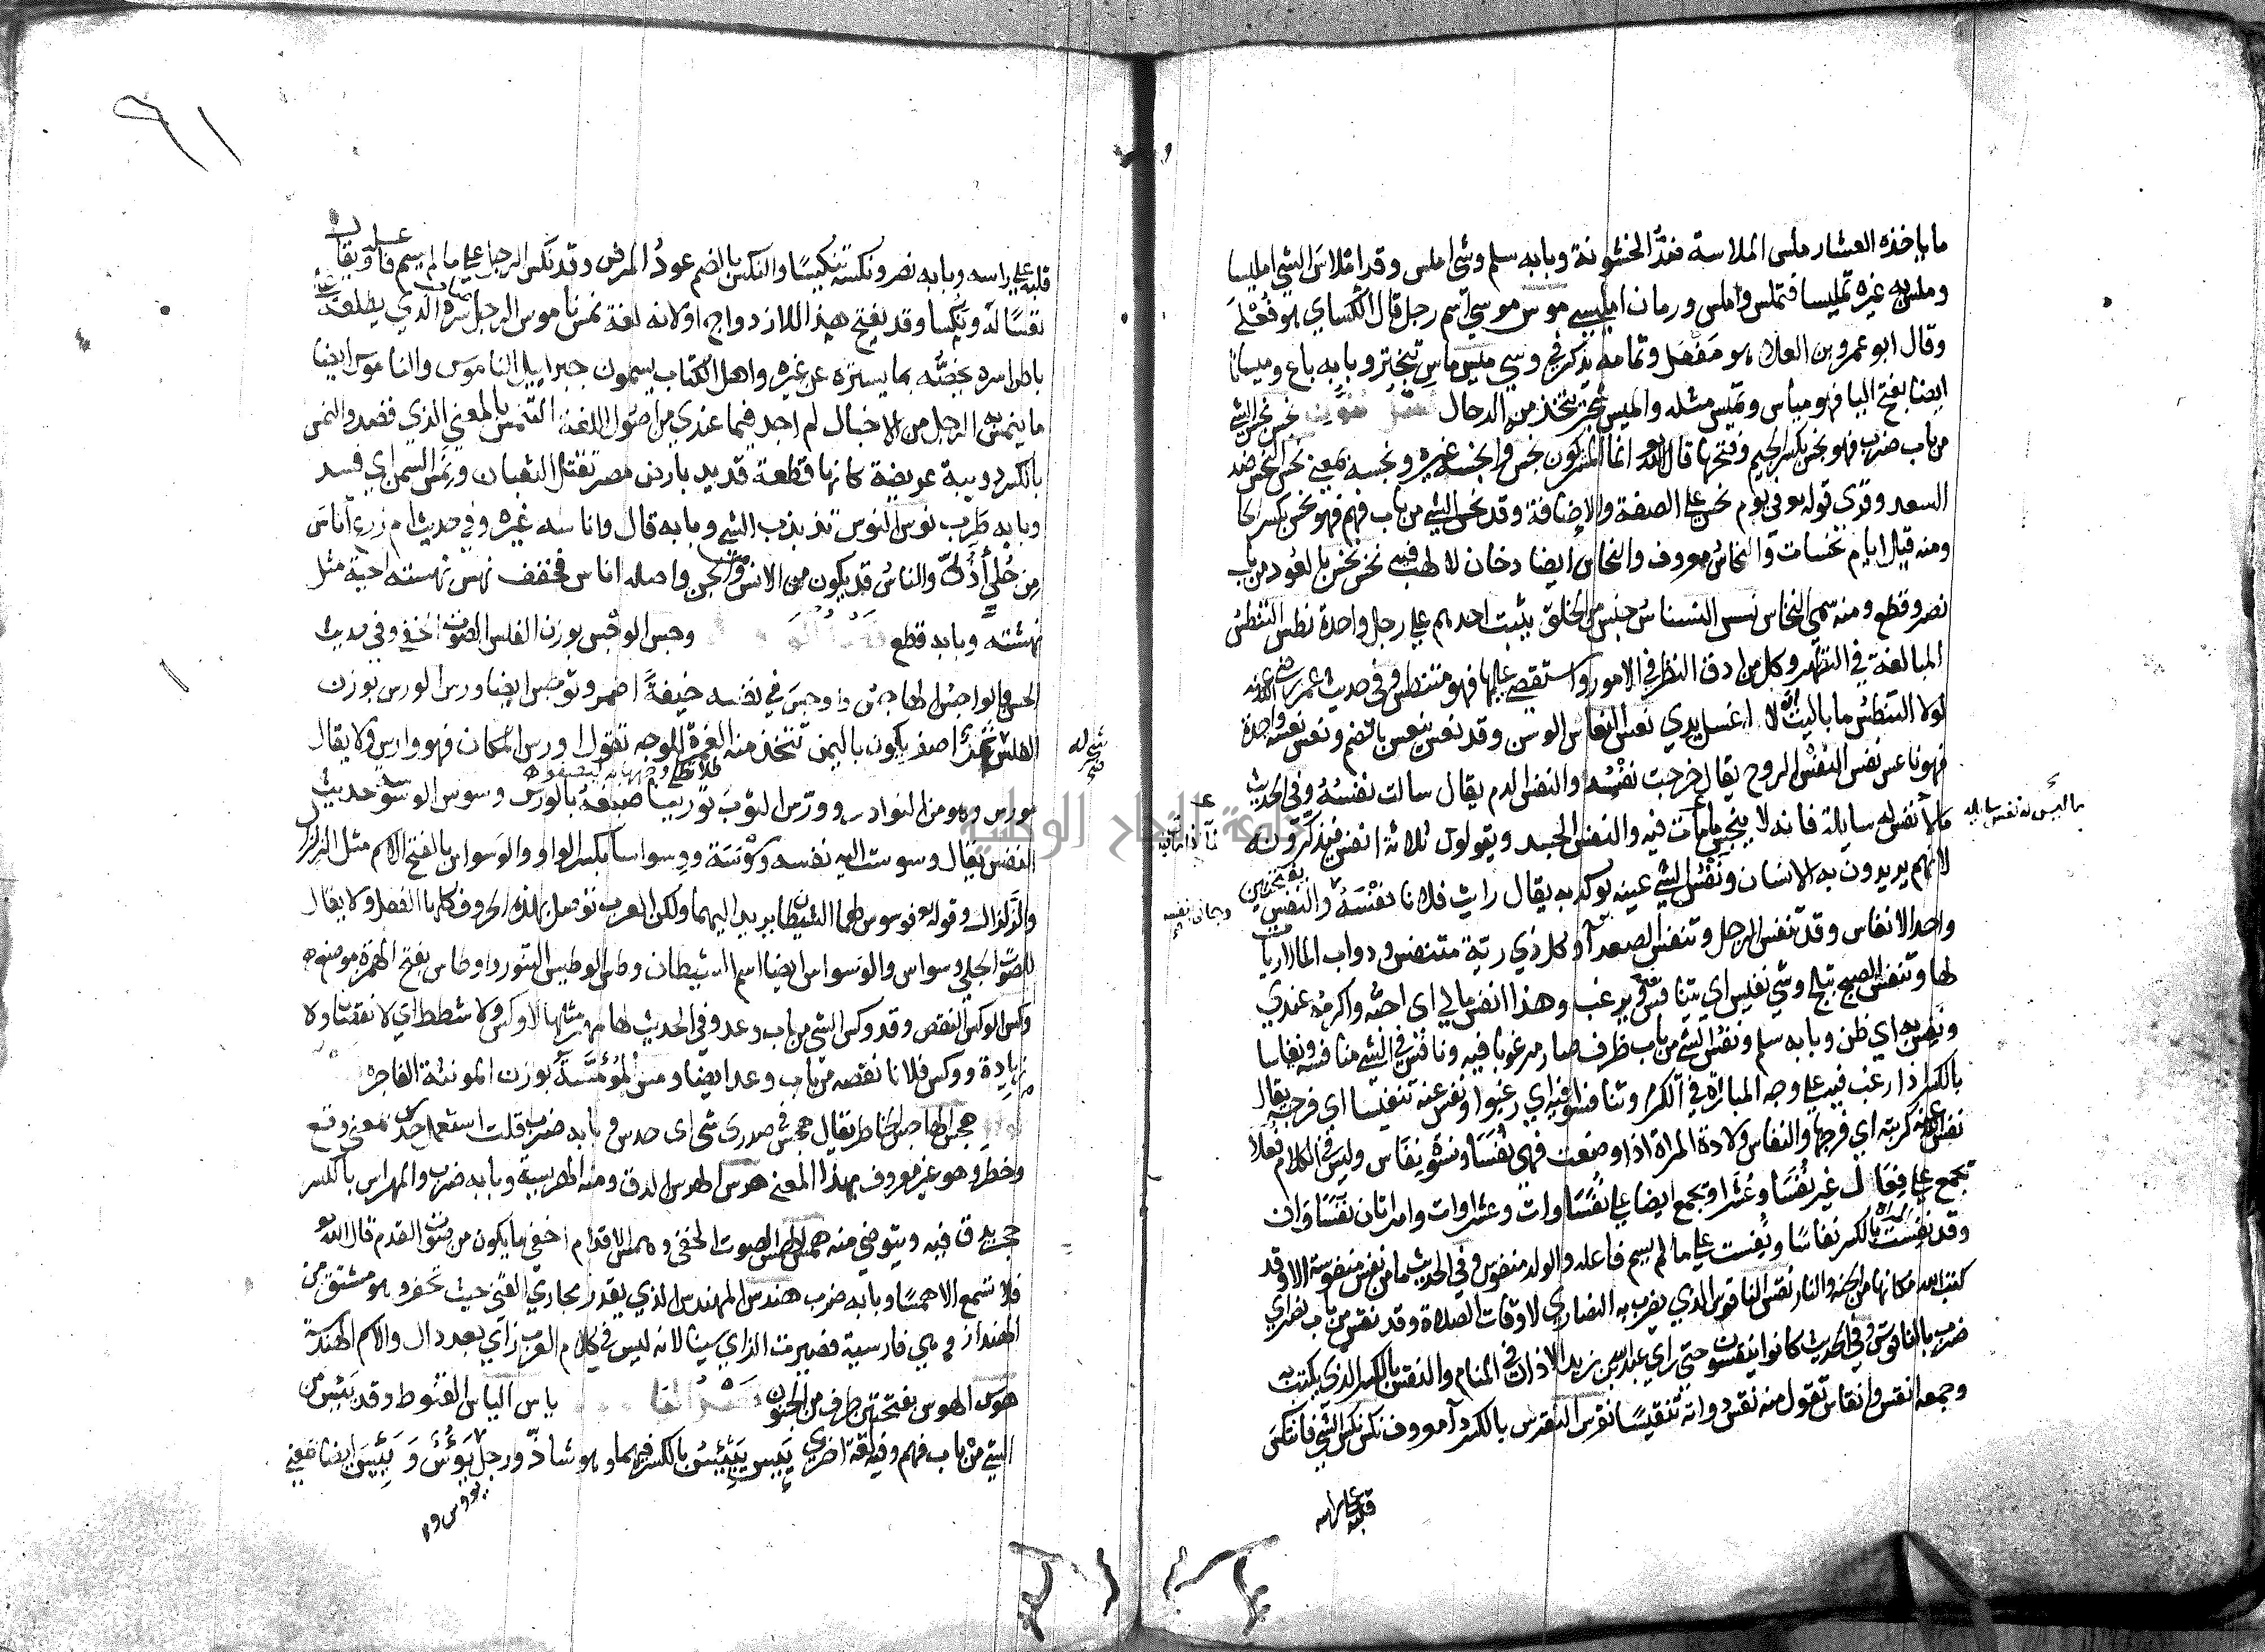 ما ياخذه العشار ملس الملاسة ضد الخشونة وبابه سلم وشئ املس وقد املاس الشئ امليسا
وملسه غيره تمليسا فتملس واملس ورمان امليسي موس موسي اسم رجل قال الكساي هو فُعْلَي
وقال ابو عمرو بن العلا هو مَفْعَل وتمامه يذكر في وسي ميس ماس تبختر وبابه باع وميسانا
ايضا بفتح اليا فهو مياس وتميس مثله والميس شجر يتخذ منه الرحال نجس نجس الشئ
من باب ضرب فهو نجس بكسر الجيم وفتحها قال الله تعو انما المشركون نجس وانجسه غيره ونجسه بمعني نحس النحس ضد
السعد وقرئ قوله تعو في يوم نحس علي الصفة والاضافة وقد نحس الشئ من باب فهم فهو نحس بكسر الحا
ومنه قيل ايام نحسات والنحاس معروف والنحاس ايضا دخان لا لهب فيه نخس نخسه بالعود من باب
نصر وقطع ومنه سمي النخاس نسس النسناس جنس من الخلق يثب احدهم علي رجل واحدة نطس التنطس
المبالغة في التطهر وكل من ادق النظر في الامور واستقصي عليها فهو متنطس وفي حديث عمر رضي الله عنه
لولا التنطس ما باليت ان لا اغسل يدي نعس النعاس الوسن وقد نعس ينعس بالضم ونعس نعسة واحدة
فهو ناعس نفس النفس الروح يقال خرجت نفسه والنفس الدم يقال سالت نفسه وفي الحديث
ما ليس له نفس سايله
ما لا نفس له سايلة فانه لا ينجس ما مات فيه والنفس الجسد ويقولون ثلاثة انفس فيذكرونه
لانهم يريدون به الانسان ونفس الشئ عينه يوكد به يقال رايت فلانا نفسه والنفس بفتحتين
واحد الانفاس وقد تنفس الرجل وتنفس الصعدآ وكل ذي رية متنفس ودواب الما لا ريات
لها وتنفس الصبح تبلج وشئ نفيس اي يتنافس فيه ويرغب وهذا انفس مالي اي احبه واكرمه عندي
ونفس به اي ظن وبابه سلم ونفس الشئ من باب ظرف صار مرغوبا فيه ونافس في الشئ منافسة ونفاسا
بالكسر اذا رغب فيه علي وجه المباراة في الكرم وتنافسوا فيه اي رغبوا ونفس عنه تنفيسا اي فرج يقال
نفس الله عنه كربته اي فرجها والنفاس ولادة المراة اذا وضعت فهي نفسا ونسوة نفاس وليس في الكلام فعلا
تجمع علي فعال غير نفسا وعشرا وتجمع ايضا علي نفساوات وعشراوات وامراتان نفساوان
وقد نفست المراه بالكسر نفاسا ونُفست علي ما لم يسم فاعله والولد منفوس وفي الحديث ما من نفس منفوسة الا وقد
كتب الله مكانها من الجنة والنار نقس الناقوس الذي يضرب به النصاري لاوقات الصلاة وقد نقس من باب نصر اي
ضرب بالناقوس وفي الحديث كانوا ينقسون حتي راي عبد الله بن زيد الاذان في المنام والنقس بالكسر الذي يكتب به
وجمعه انقس وانقاس تقول منه نقس دواته تنقيسا نقرس النقرس بالكسر دآ معروف نكس نكس الشئ فانتكس
قلبه علي راسه
٩١
قلبه علي راسه وبابه نصر ونكسه تنكيسا والنكس بالضم عود المرض وقد نكس الرجل علي ما لم يسم فاعله ويقال
تعسًا له ونكسا وقد يفتح هنا للازدواج او لانه لغة نمس ناموس الرجل صاحب سره الذي يطلعه علي
باطن امره يخصه بما يستره عن غيره واهل الكتاب يسمون جبراييل الناموس والناموس ايضا
ما ينمس به الرجل من الاحتيال لم اجد فيما عندي من اصول اللغة التنمس بالمعني الذي قصد والنمس
بالكسر دويبة عريضة كانها قطعة قديد بارض مصر تقتل الثعبان ونَمِس السمن اي فسد
وبابه طرب نوس النوس تذبذب الشئ وبابه قال واناسه غيره وفي حديث ام زرع اناس
من حُلي أذني والناس قد يكون من الانس ومن الجن واصله اناس فخفف نهس نهسته الحية مثل
نهشته وبابه قطع وجس الوجس بوزن الفلس الصوت الخفي وفي حديث
الحسن والواجس الهاجس واوجس في نفسه خيفة اضمر وتوجس ايضا ورس الورس بوزن
الفلس نبت اصفر يكون باليمن تتخذ منه الغمرة للوجه تقول اورس المكان فهو وارس ولا يقال
مورس وهو من النوادر وورّس الثوب توريسا صبغه بالورس وسوس الوسوسة حديث
النفس يقال وسوست اليه نفسه وسوسة ووسواسا بكسر الواو والوسواس بالفتح الاسم مثل الزلزال
والزلزال وقوله تعو فوسوس لهما الشيطان يريد اليهما ولكن العرب توصل بهذه الحروف كلها الفعل ولا يقال
لصوت الحلي وسواس والوسواس ايضا اسم الشيطان وطس الوطيس التنور واوطاس بفتح الهمزة موضع
وكس الوكس النقص وقد وكس الشئ من باب وعد وفي الحديث لها مهر مثلها لا وكس ولا شطط اي لا نقصان ولا
زيادة ووكس فلانا نقصه من باب وعد ايضا ومس المُوْمِسَة بوزن المونسة الفاجره
هجس الهاجس الخاطر يقال هجس في صدري شئ اي حدس وبابه ضرب قلت استعمل حدس بمعني وقع
وخطر وهو غير معروف بهذا المعني هرس الهرس الدق ومنه الهريسة وبابه ضرب والمهراس بالكسر
حجر يدق فيه ويتوضي منه همس الهمس الصوت الخفي وهمس الاقدام اخفي ما يكون من صوت القدم قال الله تعو
فلا تسمع الا همسًا وبابه ضرب هندس المهندس الذي يقدر مجاري القني حيث تحفر وهو مشتق من
الهنداز وهي فارسية فصيرت الزاي سينا لانه ليس في كلام العرب زاي بعد دال والاسم الهندسة
هوس الهوس بفتحتين طرف من الجنون ياس الياس القنوط وقد يئس من
الشئ من باب فهم وفيه لغة اخري يئس ييئِس بالكسر فيهما وهو شاذ ورجل يؤس و يئيس ايضا بمعني